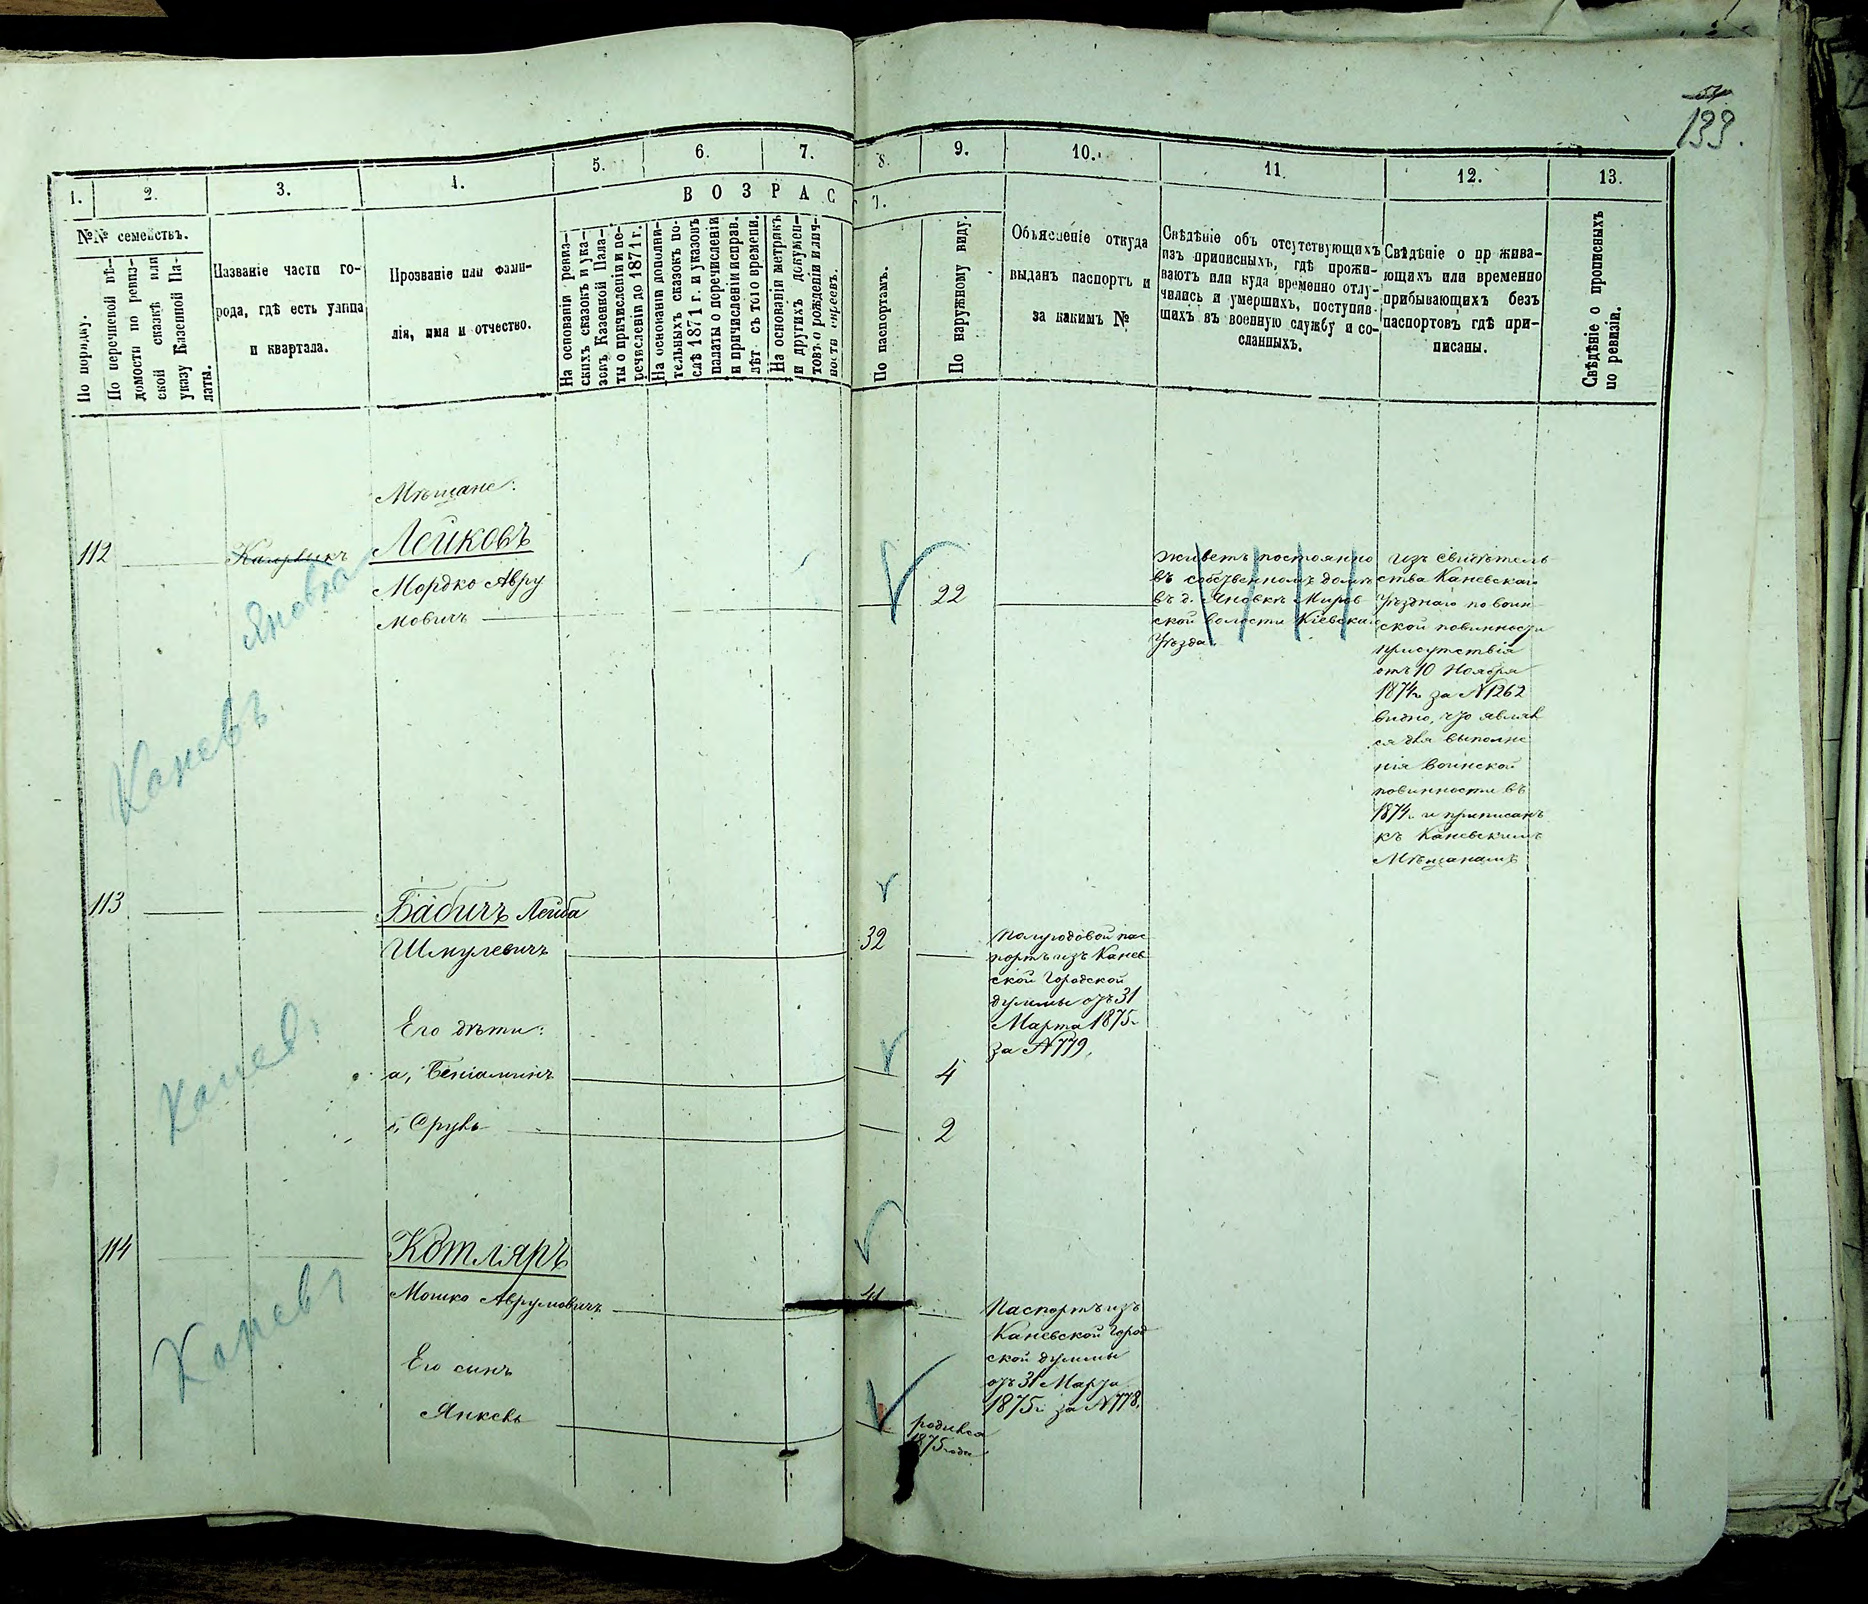 133.
1.
2.
3.
4.
5.
6.
7.
8.
9.
10.
11.
12.
13.
ВОЗРАС
Т.
№№ семействъ.
По порядку.
По перечневой вѣ-
домости по ревиз-
ской сказкѣ или
указу Казенной Па-
латы.
Названіе части го-
рода, гдѣ есть улица
и квартала.
Прозваніе или фами-
лія, имя и отчество.
На основаніи ревиз-
скихъ сказокъ и ука-
зовъ Казенной Пала-
ты о причисленіи и пе-
речисленіи до 1871 г.
На основаніи дополни-
тельныхъ сказокъ по-
слѣ 1871 г. и указовъ
палаты о перечисленіи
и причисленіи исправ.
лѣт съ того времени.
На основаніи метрикъ
и другихъ докумен-
товъ о рожденіи и лич-
ности евреевъ.
По паспортамъ.
По наружному виду.
Объясненіе откуда
выданъ паспортъ и
за какимъ №
Свѣдѣніе объ отсутствующихъ
изъ приписныхъ, гдѣ прожи-
ваютъ или куда временно отлу-
чились и умершихъ, поступив-
шихъ въ военную службу и со-
сланныхъ.
Свѣдѣніе о пр жива-
ющихъ или временно
прибывающихъ безъ
паспортовъ гдѣ при-
писаны.
Свѣдѣніе о прописныхъ
по ревизіи.
Мѣщане:
112
Кагорликъ
Яновка
Каневъ
Лейковъ
Мордко Авру
мовичъ
22
Живетъ постоянно
въ собственномъ домѣ
въ д. Яновкѣ Миров
ской волости Кіевскаго
Уѣзда.
Изъ свидѣтель
ства Каневскаго
Уѣзднаго по воин
ской повинности
присутствія
отъ 10 Ноября
1874 г. за N 1262
видно, что являл
ся для выполне
нія воинской
повинности въ
1874 г. и приписанъ
къ Каневскимъ
Мѣщанамъ
113
Канев.
Бабичъ Лейба
Шмулевичъ
32
Полугодовой пас
портъ изъ Канев
ской Городской
думмы отъ 31
Марта 1875 г.
за N 779.
Его дѣти:
а, Беніаминъ
4
б, Сруль
2
114
Каневъ
Котляръ
Мошко Аврумовичъ
41
Паспортъ изъ
Каневской Город
ской думмы
отъ 31 Марта
1875 г. за N 778.
Его сынъ
Янкель
родился
1875 года